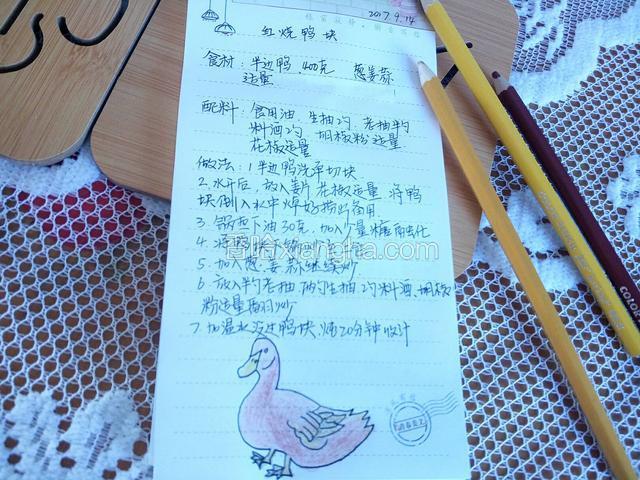 2017.9.14
红烧鸭块
食材:半边鸭.400克 葱姜蒜
适量
配料:食用油.生抽2勺.老抽半勺
料酒2勺.胡椒粉适量
花椒适量
做法:1半边鸭洗净切块
2.水开后,放入姜片花椒适量 将鸭
块倒入水中焯好捞出备用
3 锅下油30克.加入少量糖融化
4
5 加入葱.姜.蒜继续炒
6 放入半勺老抽,两勺生抽,2勺料酒、胡椒
粉适量翻炒
7.加温水没过鸭块.烧20分钟收汁
香哈xiangha.com